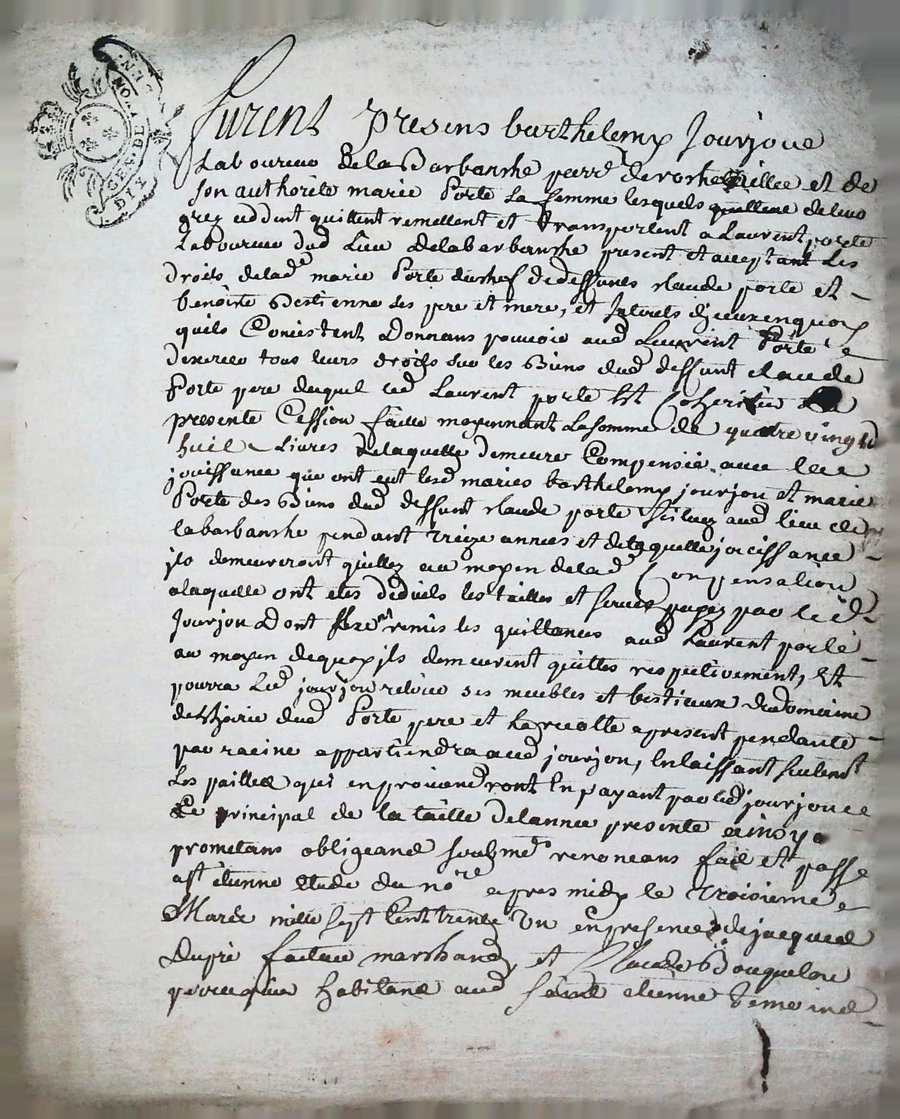 GEN. DE LYON. EN.
DIX
Furent presens barthelemy Jourjone
Laboureur de la Barbanche parr. de rochetaillee et de
son authorite marie Porte sa femme lesquels de leur
grez ceddent quittent remettent et transportent a Laurent porte
Laboureur dud. Lieu de labarbanche present et acceptant Les
droits de lad. marie Porte du chef de deffunts claude porte et
benoite Bestienne ses pere et mere, et Interets d'iceux en quoy
quils Consistent Donnans pouvoir aud. Laurent Porte
dexercer tous leurs droits sur les Biens dud. deffunt claude
Porte pere duquel led. Laurent porte Est Coheritier La
presente Cession faitte moyennant La somme de quatre vingt
huit Livres de laquelle demeure Compensée avec la
jouissance que ont eut lesd. maries barthelemy jourjon et marie
Porte des Biens dud. deffunt claude porte scituez aud. lieu de
labarbanche pendant treize années et de laquelle jouissance
ils demeureront quittes au moyen de lad. Compensation
a laquelle ont etes deduits les tailles et servis payez par led.
Jourjon Dont remis les quittances aud. Laurent porte
au moyen de quoy ils demeurent quittes respectivement, Et
pourra Led. jourjon retirer ses meubles et bestieaux du domaine
dud. Porte pere et La recolte a present pendante
par racine appartiendra aud. jourjon, En laissant seulemt.
Les pailles qui en proviendront En payant par led. jourjon
Le principal de la taille de lannée presente ainsy
prometans obligeans soubme. renoncans fait et passé
a st. etienne Etude du nore. apres midy le troisieme
Mars mille sept Cent trente Un en presence de jacques
Dupré facteur marchand, et Claude
perruquier habitans aud. Saint etienne temoins